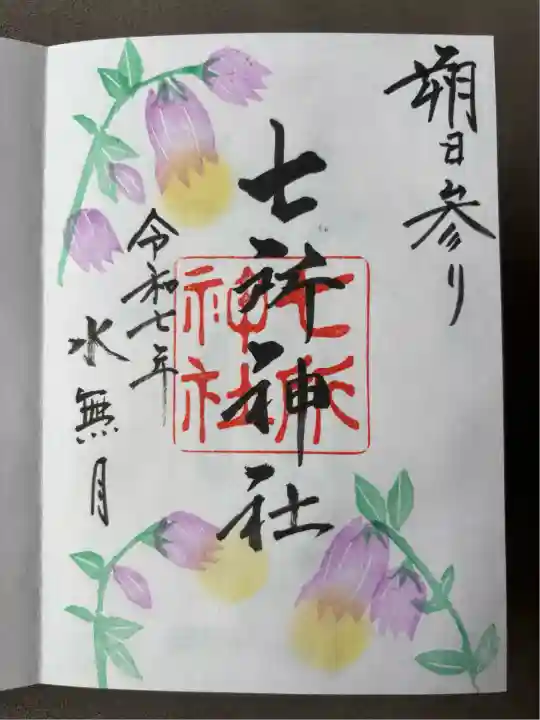 朔日参り
七所神社
七所
神社
令和七年
水無月